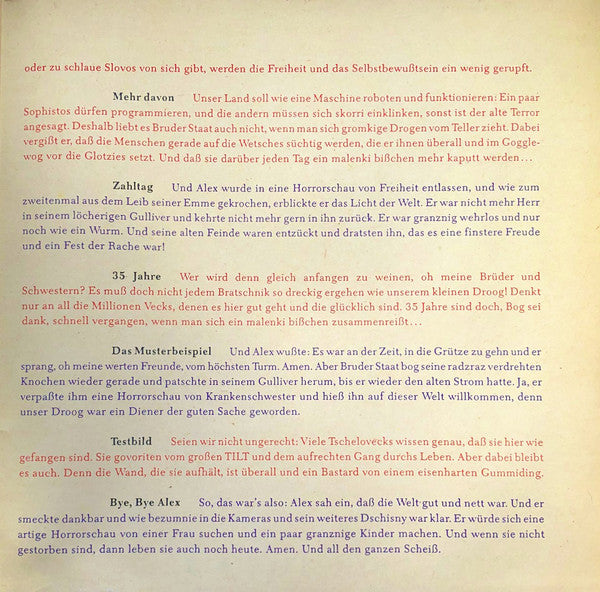 oder zu schlaue Slovos von sich gibt, werden die Freiheit und das Selbstbewußtsein ein wenig gerupft.
Mehr davon Unser Land soll wie eine Maschine roboten und funktionieren: Ein paar
Sophistos dürfen programmieren, und die andern müssen sich skorri einklinken, sonst ist der alte Terror
angesagt. Deshalb liebt es Bruder Staat auch nicht, wenn man sich gromkige Drogen vom Teller zieht. Dabei
vergißt er, daß die Menschen gerade auf die Wetsches süchtig werden, die er ihnen überall und im Goggle-
wog vor die Glotzies setzt. Und daß sie darüber jeden Tag ein malenki bißchen mehr kaputt werden...
Zahltag Und Alex wurde in eine Horrorschau von Freiheit entlassen, und wie zum
zweitenmal aus dem Leib seiner Emme gekrochen, erblickte er das Licht der Welt. Er war nicht mehr Herr
in seinem löcherigen Gulliver und kehrte nicht mehr gern in ihn zurück. Er war granznig wehrlos und nur
noch wie ein Wurm. Und seine alten Feinde waren entzückt und dratsten ihn, das es eine finstere Freude
und ein Fest der Rache war!
35 Jahre Wer wird denn gleich anfangen zu weinen, oh meine Brüder und
Schwestern? Es muß doch nicht jedem Bratschnik so dreckig ergehen wie unserem kleinen Droog! Denkt
nur an all die Millionen Vecks, denen es hier gut geht und die glücklich sind. 35 Jahre sind doch, Bog sei
dank, schnell vergangen, wenn man sich ein malenki bißchen zusammenreißt...
Das Musterbeispiel Und Alex wußte: Es war an der Zeit, in die Grütze zu gehn und er
sprang, oh meine werten Freunde, vom höchsten Turm. Amen. Aber Bruder Staat bog seine radzraz verdrehten
Knochen wieder gerade und patschte in seinem Gulliver herum, bis er wieder den alten Strom hatte. Ja, er
verpaßte ihm eine Horrorschau von Krankenschwester und hieß ihn auf dieser Welt willkommen, denn
unser Droog war ein Diener der guten Sache geworden.
Testbild Seien wir nicht ungerecht: Viele Tschelovecks wissen genau, daß sie hier wie
gefangen sind. Sie govoriten vom großen TILT und dem aufrechten Gang durchs Leben. Aber dabei bleibt
es auch. Denn die Wand, die sie aufhält, ist überall und ein Bastard von einem eisenharten Gummiding.
Bye, Bye Alex So, das war's also: Alex sah ein, daß die Welt gut und nett war. Und er
smeckte dankbar und wie bezumnie in die Kameras und sein weiteres Dschisny war klar. Er würde sich eine
artige Horrorschau von einer Frau suchen und ein paar granznige Kinder machen. Und wenn sie nicht
gestorben sind, dann leben sie auch noch heute. Amen. Und all den ganzen Scheiß.